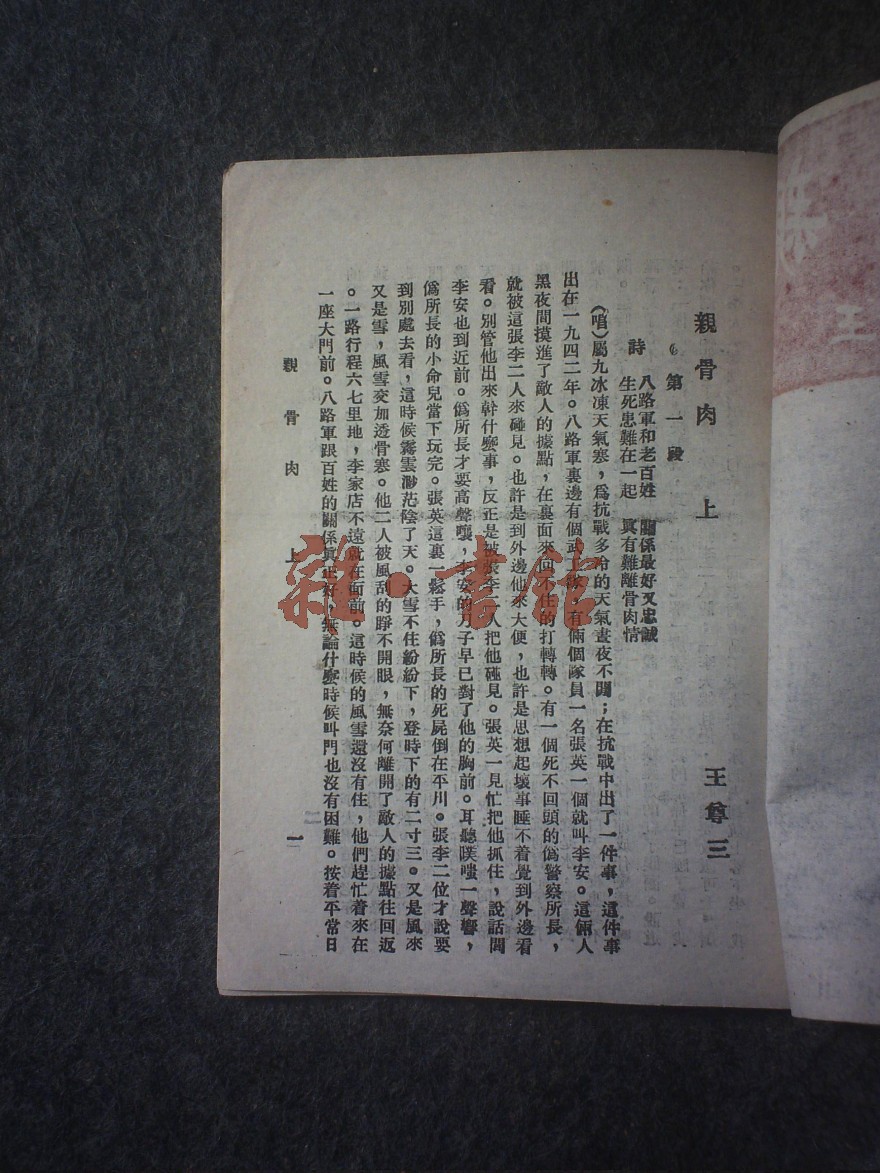 親骨肉 上
王尊三
第一段
詩 八路軍和老百姓 關係最好又忠誠
生死患難在一起 眞有難離骨肉情
(唱)屬九冰凍天氣寒,爲抗戰多份的天氣晝夜不閑;在抗戰中出了一件事,這件事
出在一九四二年。八路軍裏邊有個武工隊,有倆個隊員一名張英一個就叫李安。這倆人
黑夜間摸進了敵人的據點,在裏面來回不住的打轉轉。有一個死不回頭的僞警察所長,
就被這張李二人來碰見。也許是到外邊他來大便,也許是思想起壞事睡不着覺到外邊看
看。別管他出來幹什麼事,反正是被張李二人把他碰見。張英一見忙把他抓住,說話間
李安也到近前。僞所長才要高聲嚷,李安的刀子早已對了他的胸前。耳聽噗嗤一聲響,
僞所長的小命兒當下玩完。張英這裏一鬆手,僞所長的死屍倒在平川。張李二位才說要
到別處去看,這時候霧雲渺茫陰了天。大雪不住紛紛下,登時下的有二寸三。又是風來
又是雪,風雪交加透骨寒。他二人被風刮的睜不開眼,無奈何離開了敵人的據點往回返
。一路行程六七里地,李家店不遠就在面前。這時候的風雪還沒有住,他們趕忙着來在
一座大門前。八路軍跟百姓的關係眞正好,無論什麼時候叫門也沒有困難。按着平常日
親骨肉 上
一
雜·書館